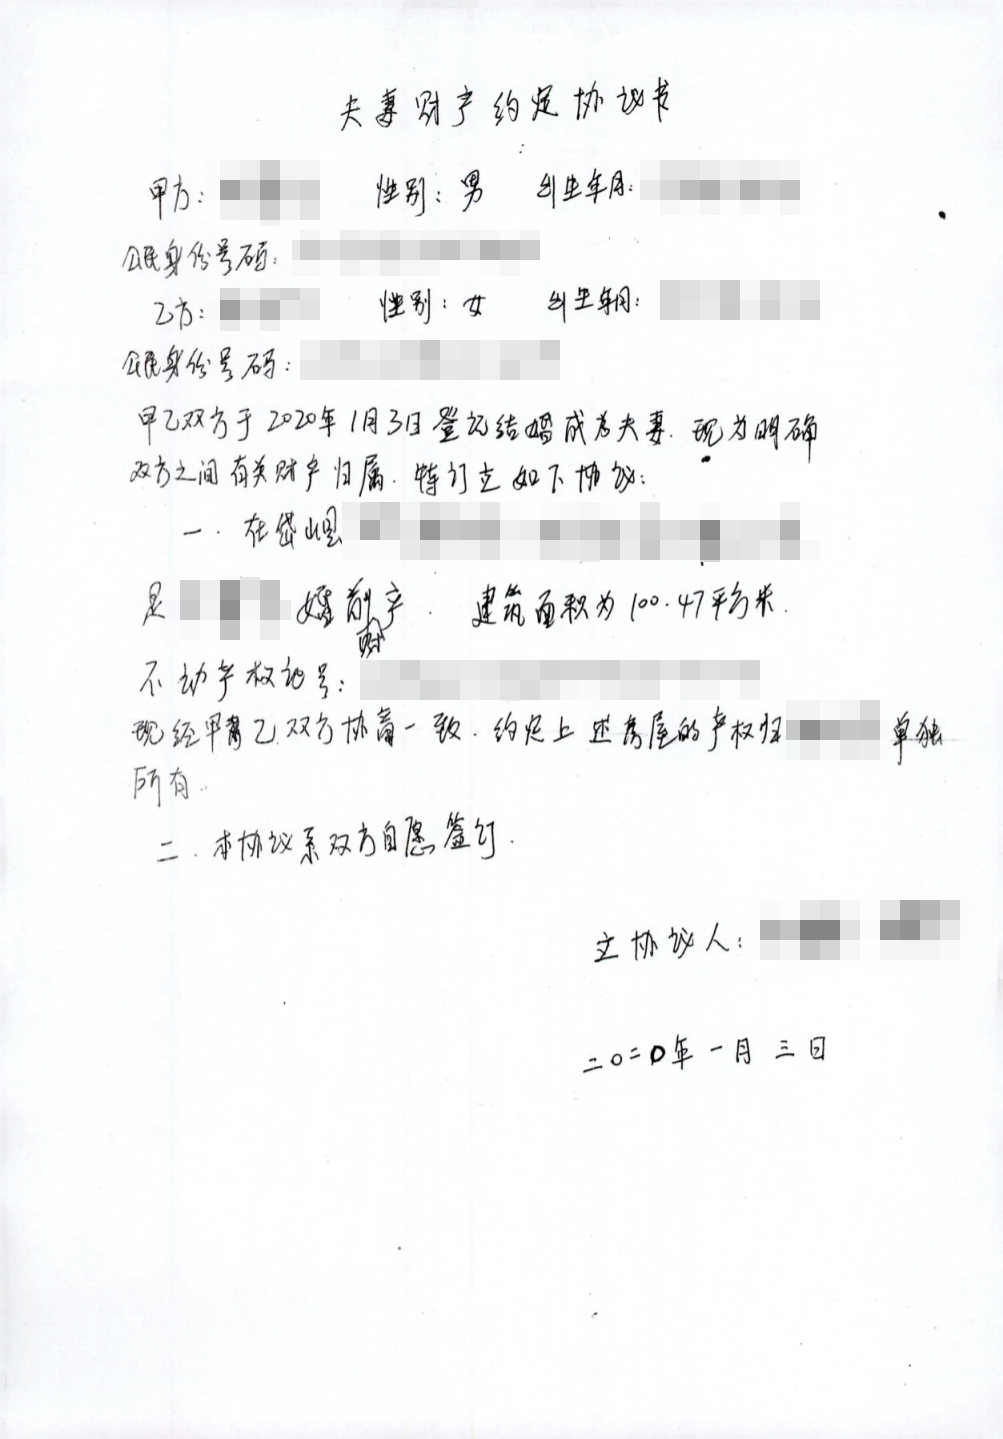 夫妻财产约定协议书
甲方: 性别: 男 出生年月:
公民身份号码:
乙方: 性别: 女 出生年月:
公民身份号码:
甲乙双方于2020年1月3日登记结婚成为夫妻. 现为明确
双方之间有关财产归属. 特订立如下协议:
一. 在岱山县
是 婚前财产. 建筑面积为100.47平方米.
不动产权证号:
现经甲乙双方协商一致. 约定上述房屋的产权归 单独
所有.
二. 本协议系双方自愿签订.
立协议人:
二〇二〇年一月三日